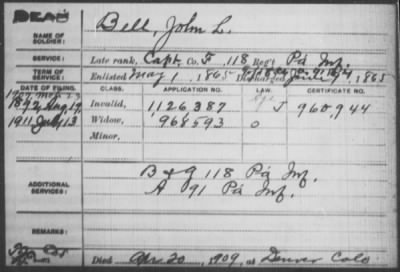 DEAD
NAME OF SOLDIER: Bell, John L.
SERVICE: Late rank, Capt. Co. F, 118 Reg't Pa Inf.
TERM OF SERVICE: Enlisted May 1, 1865 Discharged June 1, 1865
DATE OF FILING. CLASS. APPLICATION NO. LAW. CERTIFICATE NO.
1892 Aug 19 Invalid, 1126387 J 960,944
1911 July 13 Widow, 968593 O
Minor,
ADDITIONAL SERVICES: B & G 118 Pa Inf.
A 91 Pa Inf.
REMARKS:
Died Apr 20, 1909, at Denver Colo